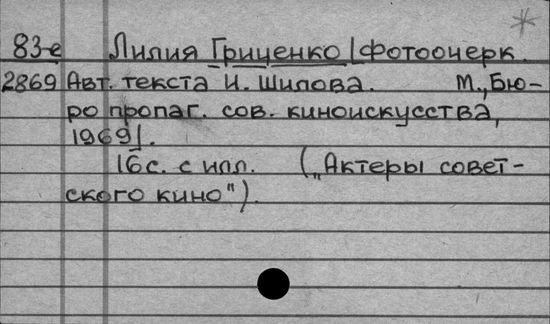 83-е Лилия Гриценко [фотоочерк.
2869 Авт. текста И. Шилова. М., Бю-
ро пропаг. сов. киноискусства,
1969].
16с. с илл. („Актеры совет-
ского кино").